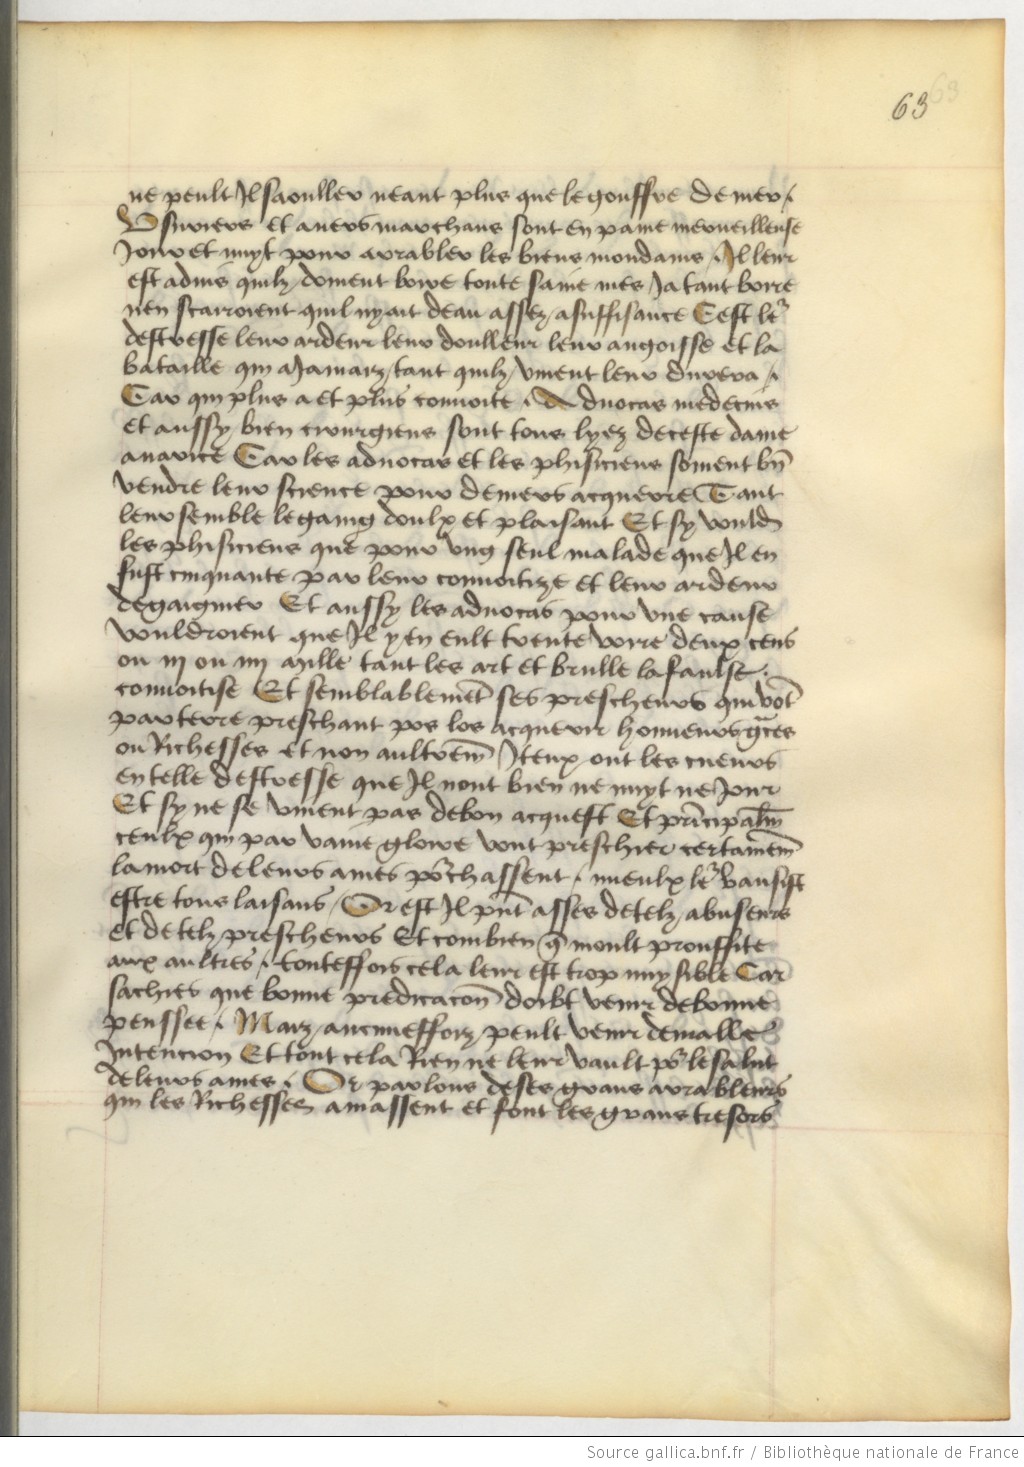 63
ne peult Il saouller neant plus que le gouffre de mer.
Usuriers et avers marchans sont en paine merveilleuse
Jour et nuyt pour arabler les biens mondains. Il leur
est advis quilz doivent boire toute saine mes Ja tant boire
nen scarroient quil ny ait deau assez a suffisance Cest le
destresse leur ardeur leur doulleur leur angoisse et la
bataille qui a Jamaiz tant quilz vivent leur durera.
Car qui plus a et plus convoite. Advocas medecins
et aussy bien cirurgiens sont tous lyez de ceste dame
avarice Car les advocas et les phisiciens seuvent bn
vendre leur science pour deniers acquerre Tant
leur semble le gaing doulx et plaisant Et sy vould
les phisiciens que pour ung seul malade que Il en
fust cinquante par leur convoitize et leur ardeur
de gaignier Et aussy les advocas pour une cause
vouldroient que Il y en eult trente voire deux cens
ou iii ou iiii mille tant les art et brulle la faulse
convoitise Et semblablemet ses prescheurs qui vot
par terre preschant pos los acquerir honneurs graces
ou Richesses et non aultrem Iteux ont les cueurs
en telle destresse que Il nont bien ne nuyt ne Jour
Et sy ne se vivent pas de bon acquest Et principalm
ceulx qui par vaine gloire vont preschier certainem
la mort de leurs ames pchassent. mieulx le vausist
estre tous laisans Or est Il pnt asses de telz abuseurs
et de telz prescheurs Et combien q moult prouffite
aux aultres. touteffois cela leur est trop nuysible Car
sachies que bonne predicacon doibt venir de bonne
penssee. Maiz aucuneffoiz peult venir de malle
Intencion Et tout cela Rien ne leur vault po le salut
de leurs ames. Or parlons de ses grans arableurs
qui les Richesses amassent et font les grans tresors
Source gallica.bnf.fr / Bibliothèque nationale de France